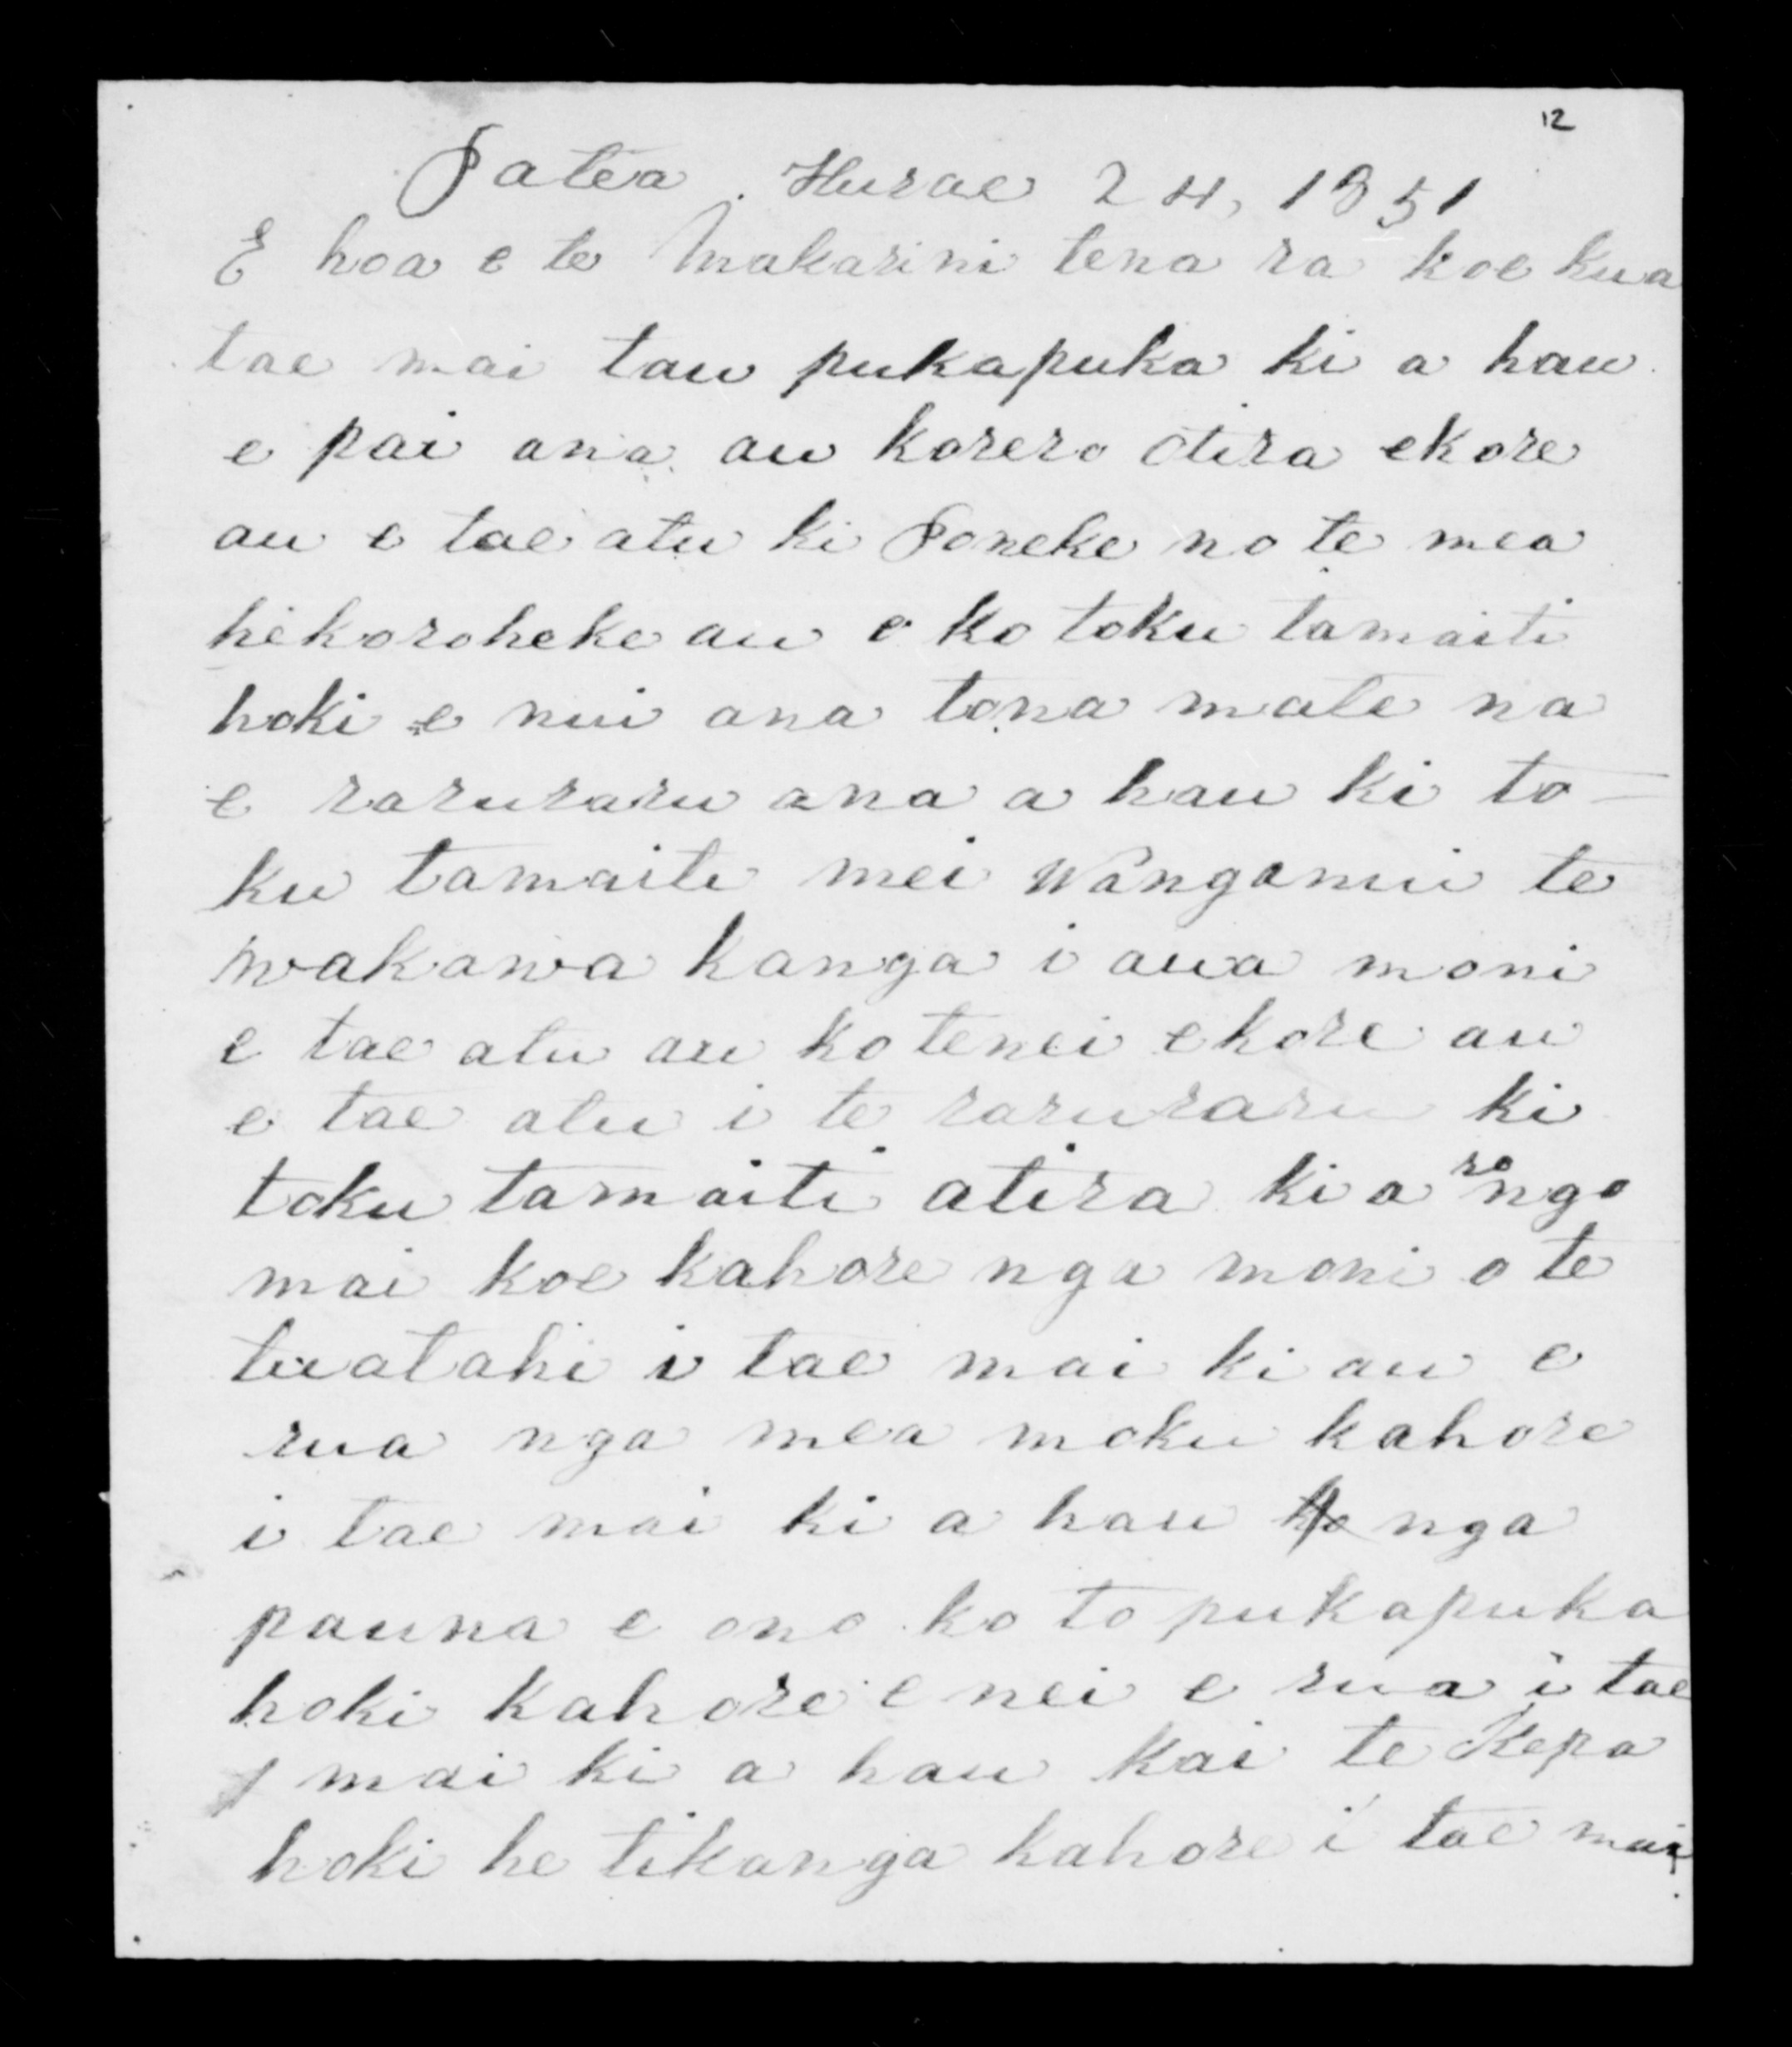 12
Patea. Hurae 24, 1851
E hoa e te Makarini tena ra koe kua
tae mai tau pukapuka ki a hau
e pai ana au korero otira ekore
au e tae atu ki Poneke no te mea
hekoroheke au e ko toku tamaiti
hoki e nui ana tona mate na
e raruraru ana a hau ki to
ku tamaiti mei Wanganui te
wakawa kanga i aua moni
e tae atu au ko tenei ekore au
e tae atu i te raruraru ki
toku tamaiti atira ki a rongo
mai koe kahore nga moni o te
tuatahi i tae mai ki au e
rua nga mea moku kahore
i tae mai ki a hau nga
pauna e ono ko to pukapuka
hoki kahore e nei e rua i tae
mai ki a hau kai te Kepa
hoki he tikanga kahore i tae mai